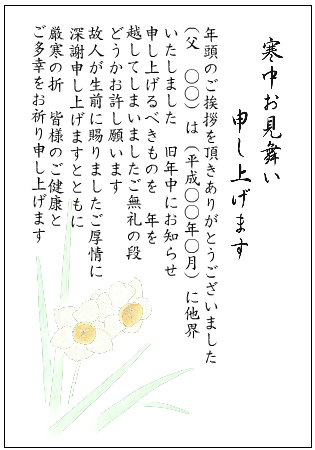 寒中お見舞い
申し上げます
年頭のご挨拶を頂きありがとうございました
(父　〇〇)は(平成〇〇年〇月)に他界
いたしました　旧年中にお知らせ
申し上げるべきものを　年を
越してしまいましたご無礼の段
どうかお許し願います
故人が生前に賜りましたご厚情に
深謝申し上げますとともに
厳寒の折　皆様のご健康と
ご多幸をお祈り申し上げます